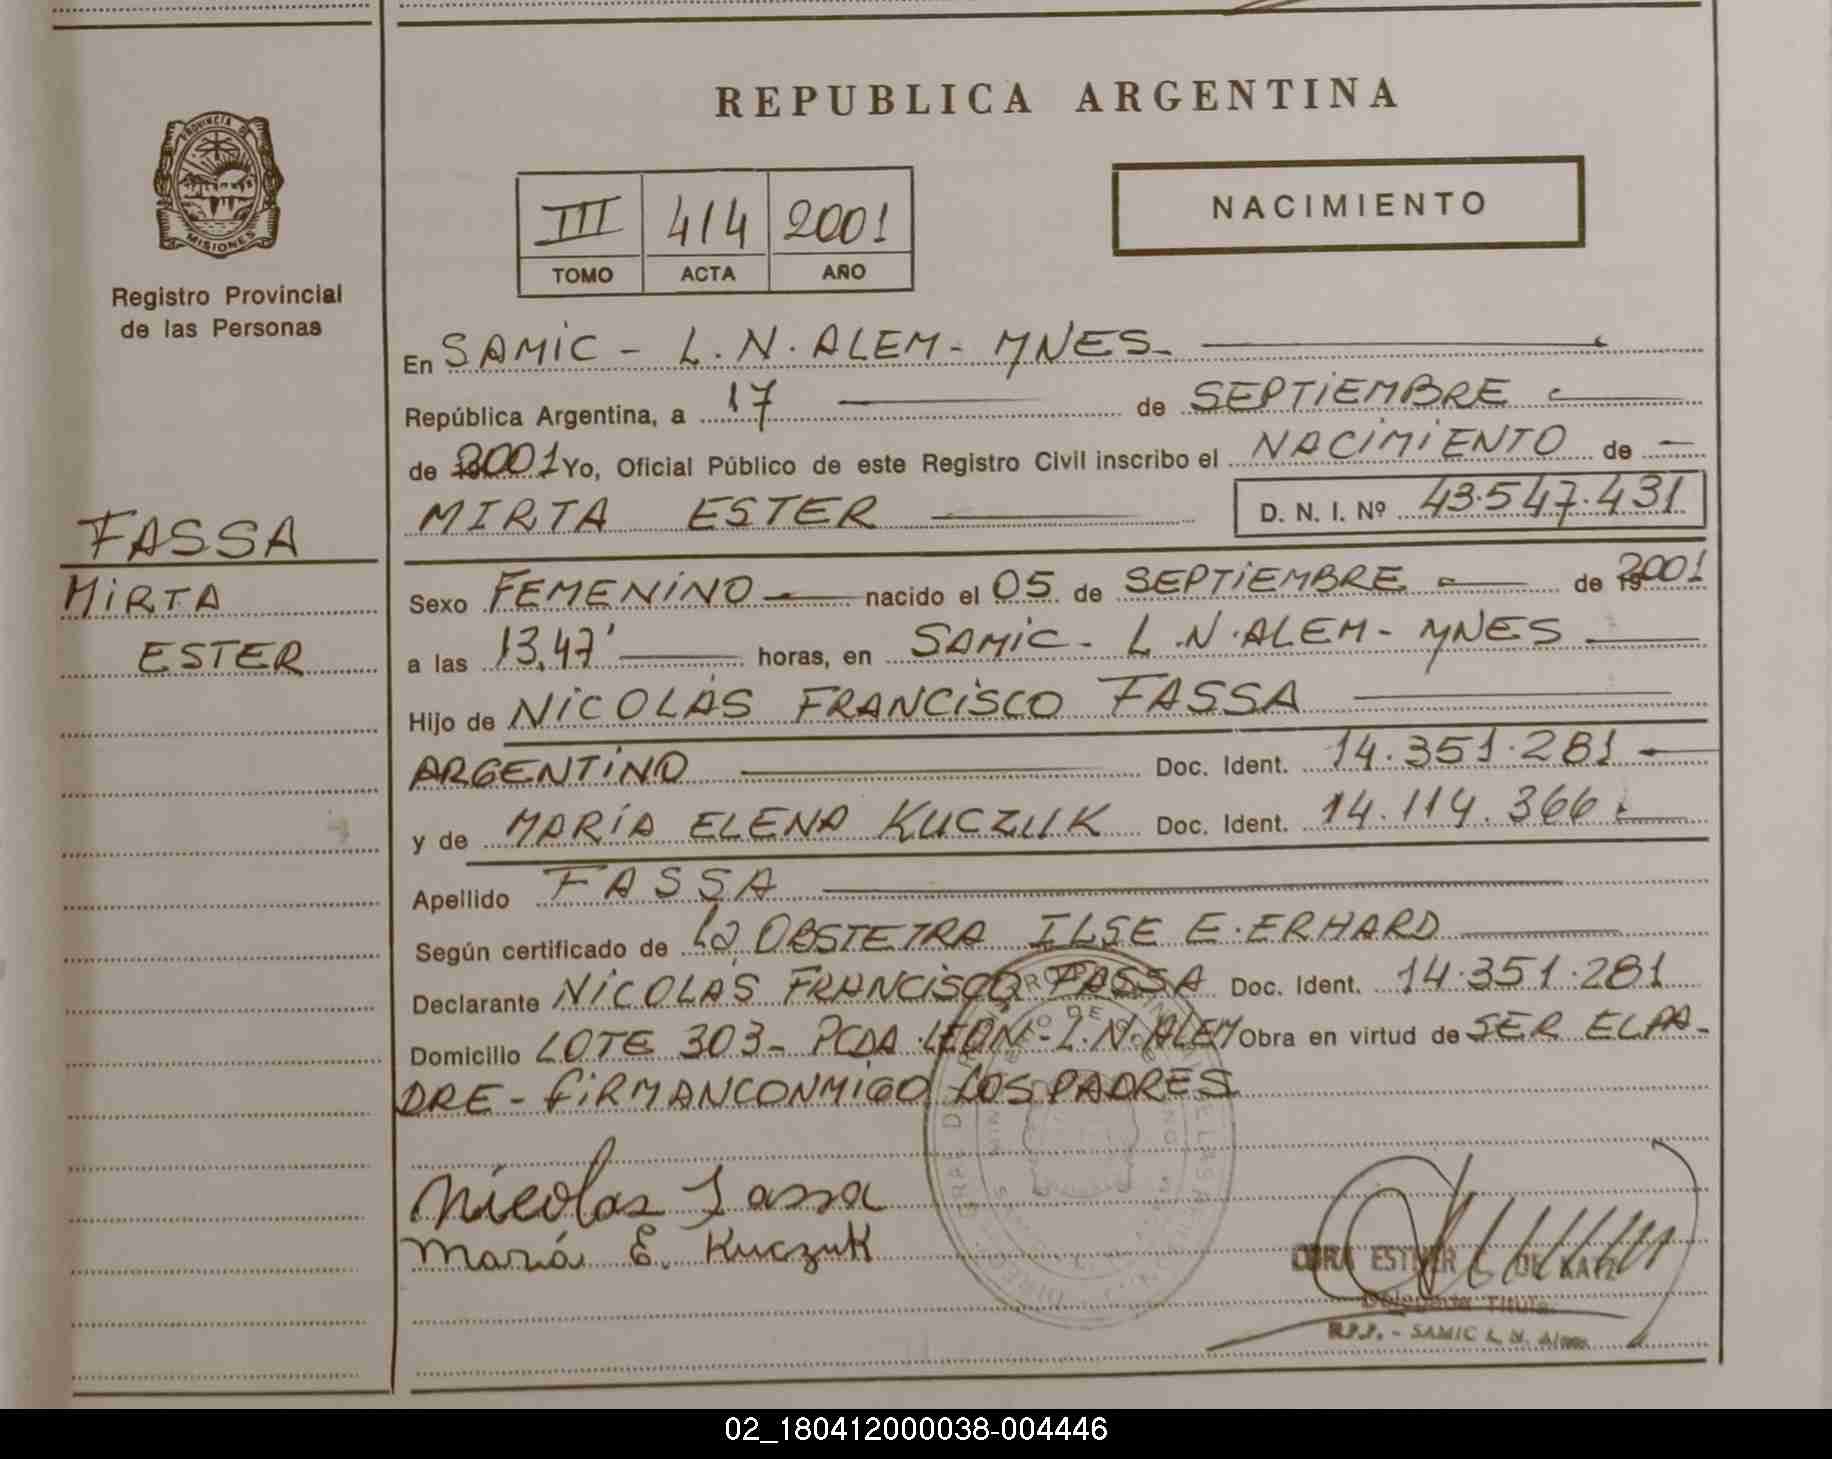 REPUBLICA ARGENTINA
PROVINCIA DE
MISIONES
Registro Provincial
de las Personas
III 414 2001
TOMO ACTA AÑO
NACIMIENTO
En SAMIC - L.N. ALEM - MNES
República Argentina, a 17 de SEPTIEMBRE
de 2001 Yo, Oficial Público de este Registro Civil inscribo el NACIMIENTO de
MIRTA ESTER D. N. I. Nº 43.547.431
FASSA
MIRTA
ESTER
Sexo FEMENINO nacido el 05 de SEPTIEMBRE de 2001
a las 13,47' horas, en SAMIC - L.N. ALEM - MNES
Hijo de NICOLÁS FRANCISCO FASSA
ARGENTINO Doc. Ident. 14.351.281
y de MARÍA ELENA KUCZUK Doc. Ident. 14.114.366
Apellido FASSA
Según certificado de La OBSTETRA ILSE E. ERHARD
Declarante NICOLÁS FRANCISCO FASSA Doc. Ident. 14.351.281
Domicilio LOTE 303 - PCDA. LEÓN - L.N. ALEM Obra en virtud de SER EL PA-
DRE - FIRMAN CONMIGO LOS PADRES
Nicolas Fassa
María E. Kuczuk
ESTHER DE KATZ
Delegada Titular
R.P.P. - SAMIC L. N. Alem
02_180412000038-004446